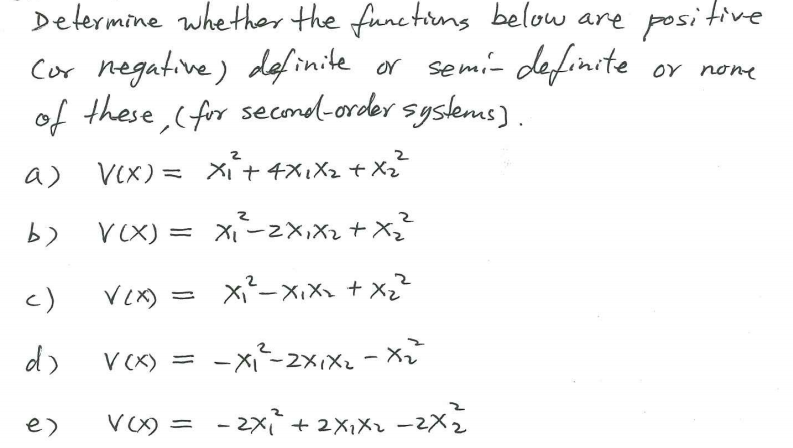 Determine whether the functions below are positive
(or negative) definite or semi-definite or none
of these, (for second-order systems).
a) V(X) = x₁² + 4x₁x₂ + x₂²
b) V(X) = x₁² - 2x₁x₂ + x₂²
c) V(X) = x₁² - x₁x₂ + x₂²
d) V(X) = -x₁² - 2x₁x₂ - x₂²
e) V(X) = -2x₁² + 2x₁x₂ - 2x₂²